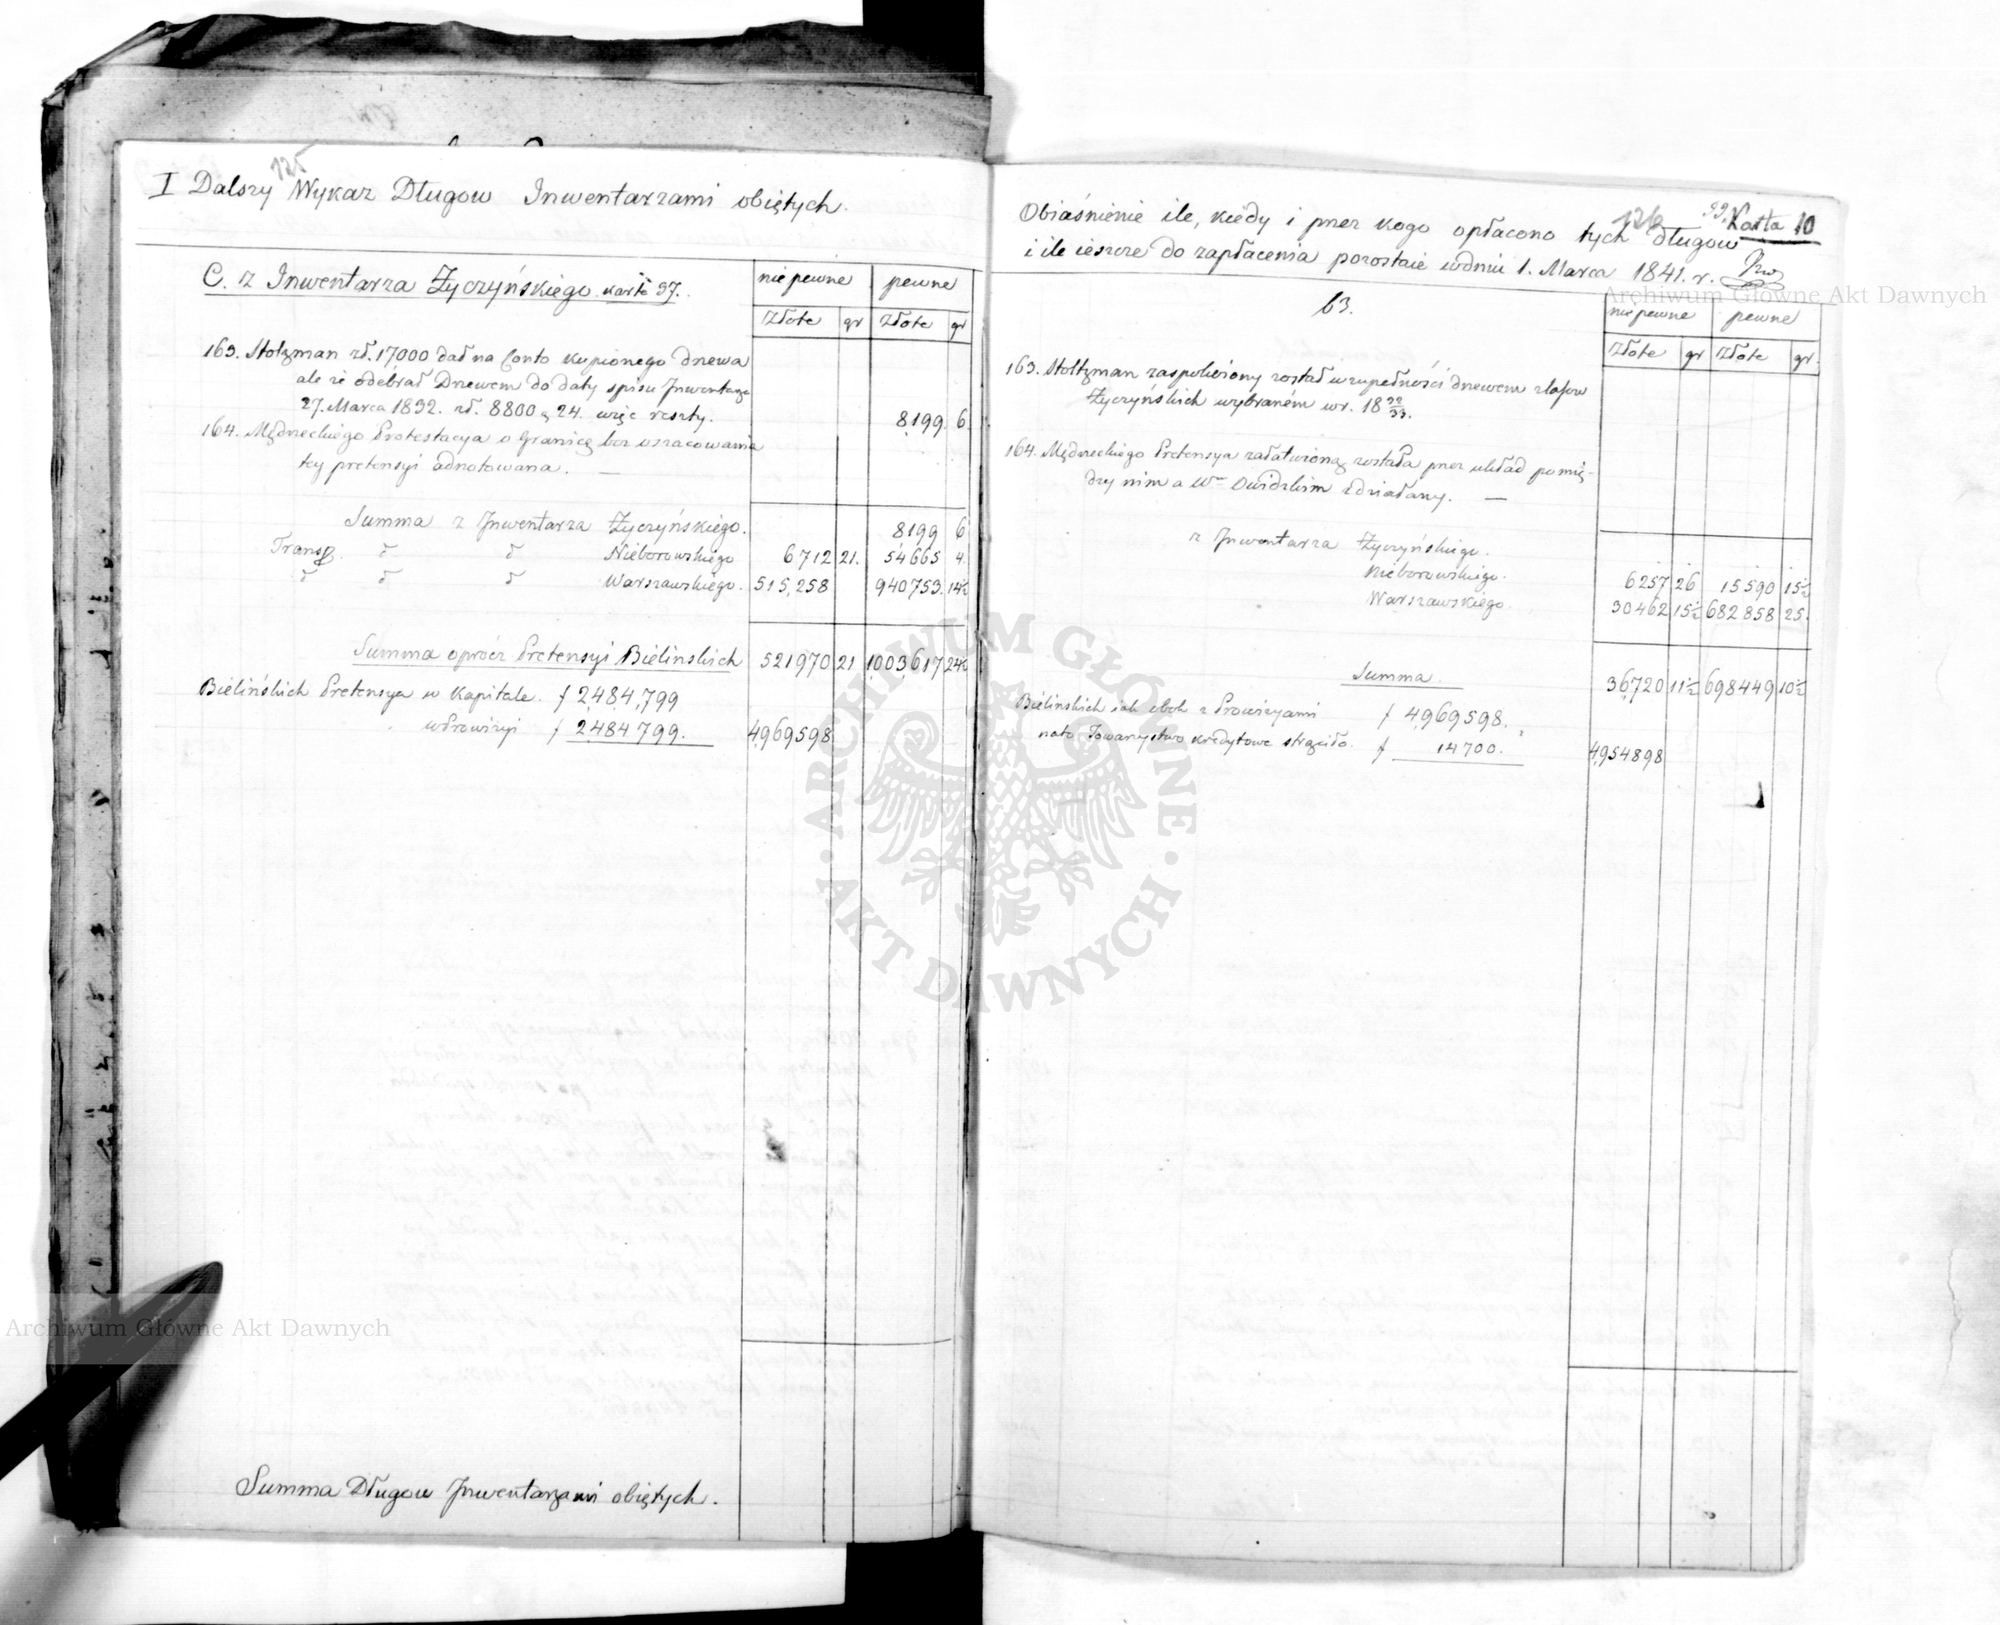 125
I Dalszy Wykaz Długow Inwentarzami obiętych.
C. z Inwentarza Życzyńskiego karte 37.
nie pewne pewne
Złote gr Złote gr
163. Stolzman zł. 17000 dał na Conto kupionego drzewa
ale że odebrał Drzewem do daty spisu Inwentarza
27. Marca 1832. zł. 8800 g 24. więc reszty. 8,199 6.
164. Mędrzeckiego Protestacya o Granicę bez oszacowania
tey pretensyi adnotowana. —
Summa z Inwentarza Życzyńskiego. 8199 6
Transp. d d Nieborowskiego 6712 21. 54665 4.
d d d Warszawskiego. 515,258 940,753. 14½
Summa oprócz Pretensyi Bielinskich 521970 21 1,003,617 24½
Bielińskich Pretensya w Kapitale. f 2,484,799
w Prowizyi f 2,484799. 4,969598
Summa Długow Inwentarzami obiętych.
126
Karta 10
Obiaśnienie ile, kiedy i przez kogo opłacono tych długow
i ile ieszcze do zapłacenia pozostaie w dniu 1. Marca 1841. r.
63.
nie pewne pewne
Złote gr Złote gr.
163. Stoltzman zaspokoiony został w zupełności drzewem z lasow
Życzyńskich wybraném w r. 18 32/33.
164. Mędrzeckiego Pretensya załatwioną została przez układ pomię-
dzy nim a Wm Dwidzkim zdziałany. —
z Inwentarza Życzyńskiego.
Nieborowskiego. 6257 26 15590 15½
Warszawskiego. 30462 15½ 682858 25.
Summa. 36,720 11½ 698449 10½
Bielinskich iak obok z Prowizyami f 4,969598.
na to Towarzystwo kredytowe strąciło. f 14700. 4,954898
Archiwum Główne Akt Dawnych
Archiwum Główne Akt Dawnych
ARCHIWUM GŁÓWNE
AKT DAWNYCH